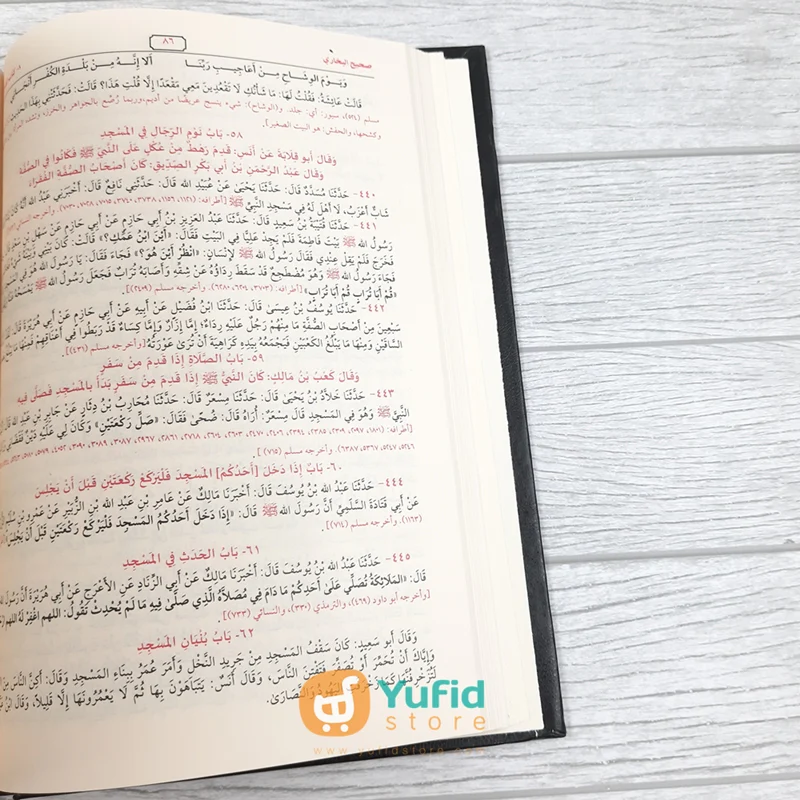 صحيح البخاري
٨٦
وَيَوْمَ الوِشَاحِ مِنْ أَعَاجِيبِ رَبِّنَا أَلَا إِنَّهُ مِنْ بَلْدَةِ الكُفْرِ أَنْجَانِي
قَالَتْ عَائِشَةُ: فَقُلْتُ لَهَا: مَا شَأْنُكِ لَا تَقْعُدِينَ مَعِي مَقْعَدًا إِلَّا قُلْتِ هَذَا؟ قَالَتْ: فَحَدَّثَتْنِي بِهَذَا الحَدِيثِ.
مسلم (٥٢٤)، سيور: أي: جلد. و(الوشاح): شيء ينسج عريضًا من أديم، وربما رُصِّع بالجواهر والخرز، وتشده المرأة
وكشحها، والحفش: هو البيت الصغير].
٥٨- بَابُ نَوْمِ الرِّجَالِ فِي المَسْجِدِ
وَقَالَ أَبُو قِلَابَةَ عَنْ أَنَسٍ: قَدِمَ رَهْطٌ مِنْ عُكْلٍ عَلَى النَّبِيِّ ﷺ فَكَانُوا فِي الصُّفَّةِ
وَقَالَ عَبْدُ الرَّحْمَنِ بْنُ أَبِي بَكْرٍ الصِّدِّيقِ: كَانَ أَصْحَابُ الصُّفَّةِ الفُقَرَاءَ
٤٤٠- حَدَّثَنَا مُسَدَّدٌ قَالَ: حَدَّثَنَا يَحْيَى عَنْ عُبَيْدِ اللهِ قَالَ: حَدَّثَنِي نَافِعٌ قَالَ: أَخْبَرَنِي عَبْدُ اللهِ أَنَّهُ كَانَ
شَابٌّ أَعْزَبُ، لَا أَهْلَ لَهُ فِي مَسْجِدِ النَّبِيِّ ﷺ [أطرافه: (١١٢١، ١١٥٦، ٣٧٣٨، ٣٧٤٠، ٧٠١٥، ٧٠٢٨، ٧٠٣٠). وأخرجه
٤٤١- حَدَّثَنَا قُتَيْبَةُ بْنُ سَعِيدٍ قَالَ: حَدَّثَنَا عَبْدُ العَزِيزِ بْنُ أَبِي حَازِمٍ عَنْ أَبِي حَازِمٍ عَنْ سَهْلِ بْنِ
رَسُولُ اللهِ ﷺ بَيْتَ فَاطِمَةَ فَلَمْ يَجِدْ عَلِيًّا فِي البَيْتِ فَقَالَ: «أَيْنَ ابْنُ عَمِّكِ؟» قَالَتْ: كَانَ بَيْنِي وَبَيْنَهُ
فَخَرَجَ فَلَمْ يَقِلْ عِنْدِي فَقَالَ رَسُولُ اللهِ ﷺ لِإِنْسَانٍ: «انْظُرْ أَيْنَ هُوَ؟» فَجَاءَ فَقَالَ: يَا رَسُولَ اللهِ هُوَ فِي
فَجَاءَ رَسُولُ اللهِ ﷺ وَهُوَ مُضْطَجِعٌ قَدْ سَقَطَ رِدَاؤُهُ عَنْ شِقِّهِ وَأَصَابَهُ تُرَابٌ فَجَعَلَ رَسُولُ اللهِ ﷺ يَمْسَحُهُ
«قُمْ أَبَا تُرَابٍ قُمْ أَبَا تُرَابٍ» [أطرافه: (٣٧٠٣، ٦٢٠٤، ٦٢٨٠). وأخرجه مسلم (٢٤٠٩)].
٤٤٢- حَدَّثَنَا يُوسُفُ بْنُ عِيسَى قَالَ: حَدَّثَنَا ابْنُ فُضَيْلٍ عَنْ أَبِيهِ عَنْ أَبِي حَازِمٍ عَنْ أَبِي هُرَيْرَةَ قَالَ:
سَبْعِينَ مِنْ أَصْحَابِ الصُّفَّةِ مَا مِنْهُمْ رَجُلٌ عَلَيْهِ رِدَاءٌ؛ إِمَّا إِزَارٌ وَإِمَّا كِسَاءٌ قَدْ رَبَطُوا فِي أَعْنَاقِهِمْ فَمِنْهَا مَا
السَّاقَيْنِ وَمِنْهَا مَا يَبْلُغُ الكَعْبَيْنِ فَيَجْمَعُهُ بِيَدِهِ كَرَاهِيَةَ أَنْ تُرَى عَوْرَتُهُ [وأخرجه مسلم (٤٣١)].
٥٩- بَابُ الصَّلَاةِ إِذَا قَدِمَ مِنْ سَفَرٍ
وَقَالَ كَعْبُ بْنُ مَالِكٍ: كَانَ النَّبِيُّ ﷺ إِذَا قَدِمَ مِنْ سَفَرٍ بَدَأَ بِالمَسْجِدِ فَصَلَّى فِيهِ
٤٤٣- حَدَّثَنَا خَلَّادُ بْنُ يَحْيَى قَالَ: حَدَّثَنَا مِسْعَرٌ قَالَ: حَدَّثَنَا مُحَارِبُ بْنُ دِثَارٍ عَنْ جَابِرِ بْنِ عَبْدِ اللهِ قَالَ:
النَّبِيَّ ﷺ وَهُوَ فِي المَسْجِدِ قَالَ مِسْعَرٌ: أُرَاهُ قَالَ: ضُحًى، فَقَالَ: «صَلِّ رَكْعَتَيْنِ» وَكَانَ لِي عَلَيْهِ دَيْنٌ فَقَضَانِي
[أطرافه: (١٨٠١، ٢٠٩٧، ٢٣٠٩، ٢٣٨٥، ٢٣٩٤، ٢٤٠٦، ٢٤٧٠، ٢٦٠٣، ٢٦٠٤، ٢٧١٨، ٢٨٦١، ٢٩٦٧، ٣٠٨٧، ٣٠٨٩، ٣٠٩٠، ٤٠٥٢،
٥٢٤٦، ٥٢٤٧، ٥٣٦٧، ٦٣٨٧). وأخرجه مسلم (٧١٥)].
٦٠- بَابُ إِذَا دَخَلَ [أَحَدُكُمُ] المَسْجِدَ فَلْيَرْكَعْ رَكْعَتَيْنِ قَبْلَ أَنْ يَجْلِسَ
٤٤٤- حَدَّثَنَا عَبْدُ اللهِ بْنُ يُوسُفَ قَالَ: أَخْبَرَنَا مَالِكٌ عَنْ عَامِرِ بْنِ عَبْدِ اللهِ بْنِ الزُّبَيْرِ عَنْ عَمْرِو بْنِ
عَنْ أَبِي قَتَادَةَ السَّلَمِيِّ أَنَّ رَسُولَ اللهِ ﷺ قَالَ: «إِذَا دَخَلَ أَحَدُكُمُ المَسْجِدَ فَلْيَرْكَعْ رَكْعَتَيْنِ قَبْلَ أَنْ يَجْلِسَ»
(١١٦٣). وأخرجه مسلم (٧١٤)].
٦١- بَابُ الحَدَثِ فِي المَسْجِدِ
٤٤٥- حَدَّثَنَا عَبْدُ اللهِ بْنُ يُوسُفَ قَالَ: أَخْبَرَنَا مَالِكٌ عَنْ أَبِي الزِّنَادِ عَنِ الأَعْرَجِ عَنْ أَبِي هُرَيْرَةَ أَنَّ رَسُولَ
قَالَ: «المَلَائِكَةُ تُصَلِّي عَلَى أَحَدِكُمْ مَا دَامَ فِي مُصَلَّاهُ الَّذِي صَلَّى فِيهِ مَا لَمْ يُحْدِثْ تَقُولُ: اللهم اغْفِرْ لَهُ اللهم
[وأخرجه أبو داود (٤٦٩)، والترمذي (٣٣٠)، والنسائي (٧٣٣)].
٦٢- بَابُ بُنْيَانِ المَسْجِدِ
وَقَالَ أَبُو سَعِيدٍ: كَانَ سَقْفُ المَسْجِدِ مِنْ جَرِيدِ النَّخْلِ وَأَمَرَ عُمَرُ بِبِنَاءِ المَسْجِدِ وَقَالَ: أَكِنَّ النَّاسَ
وَإِيَّاكَ أَنْ تُحَمِّرَ أَوْ تُصَفِّرَ فَتَفْتِنَ النَّاسَ، وَقَالَ أَنَسٌ: يَتَبَاهَوْنَ بِهَا ثُمَّ لَا يَعْمُرُونَهَا إِلَّا قَلِيلًا، وَقَالَ ابْنُ
لَتُزَخْرِفُنَّهَا كَمَا زَخْرَفَتِ اليَهُودُ وَالنَّصَارَى.
Yufid
store
www.yufidstore.com